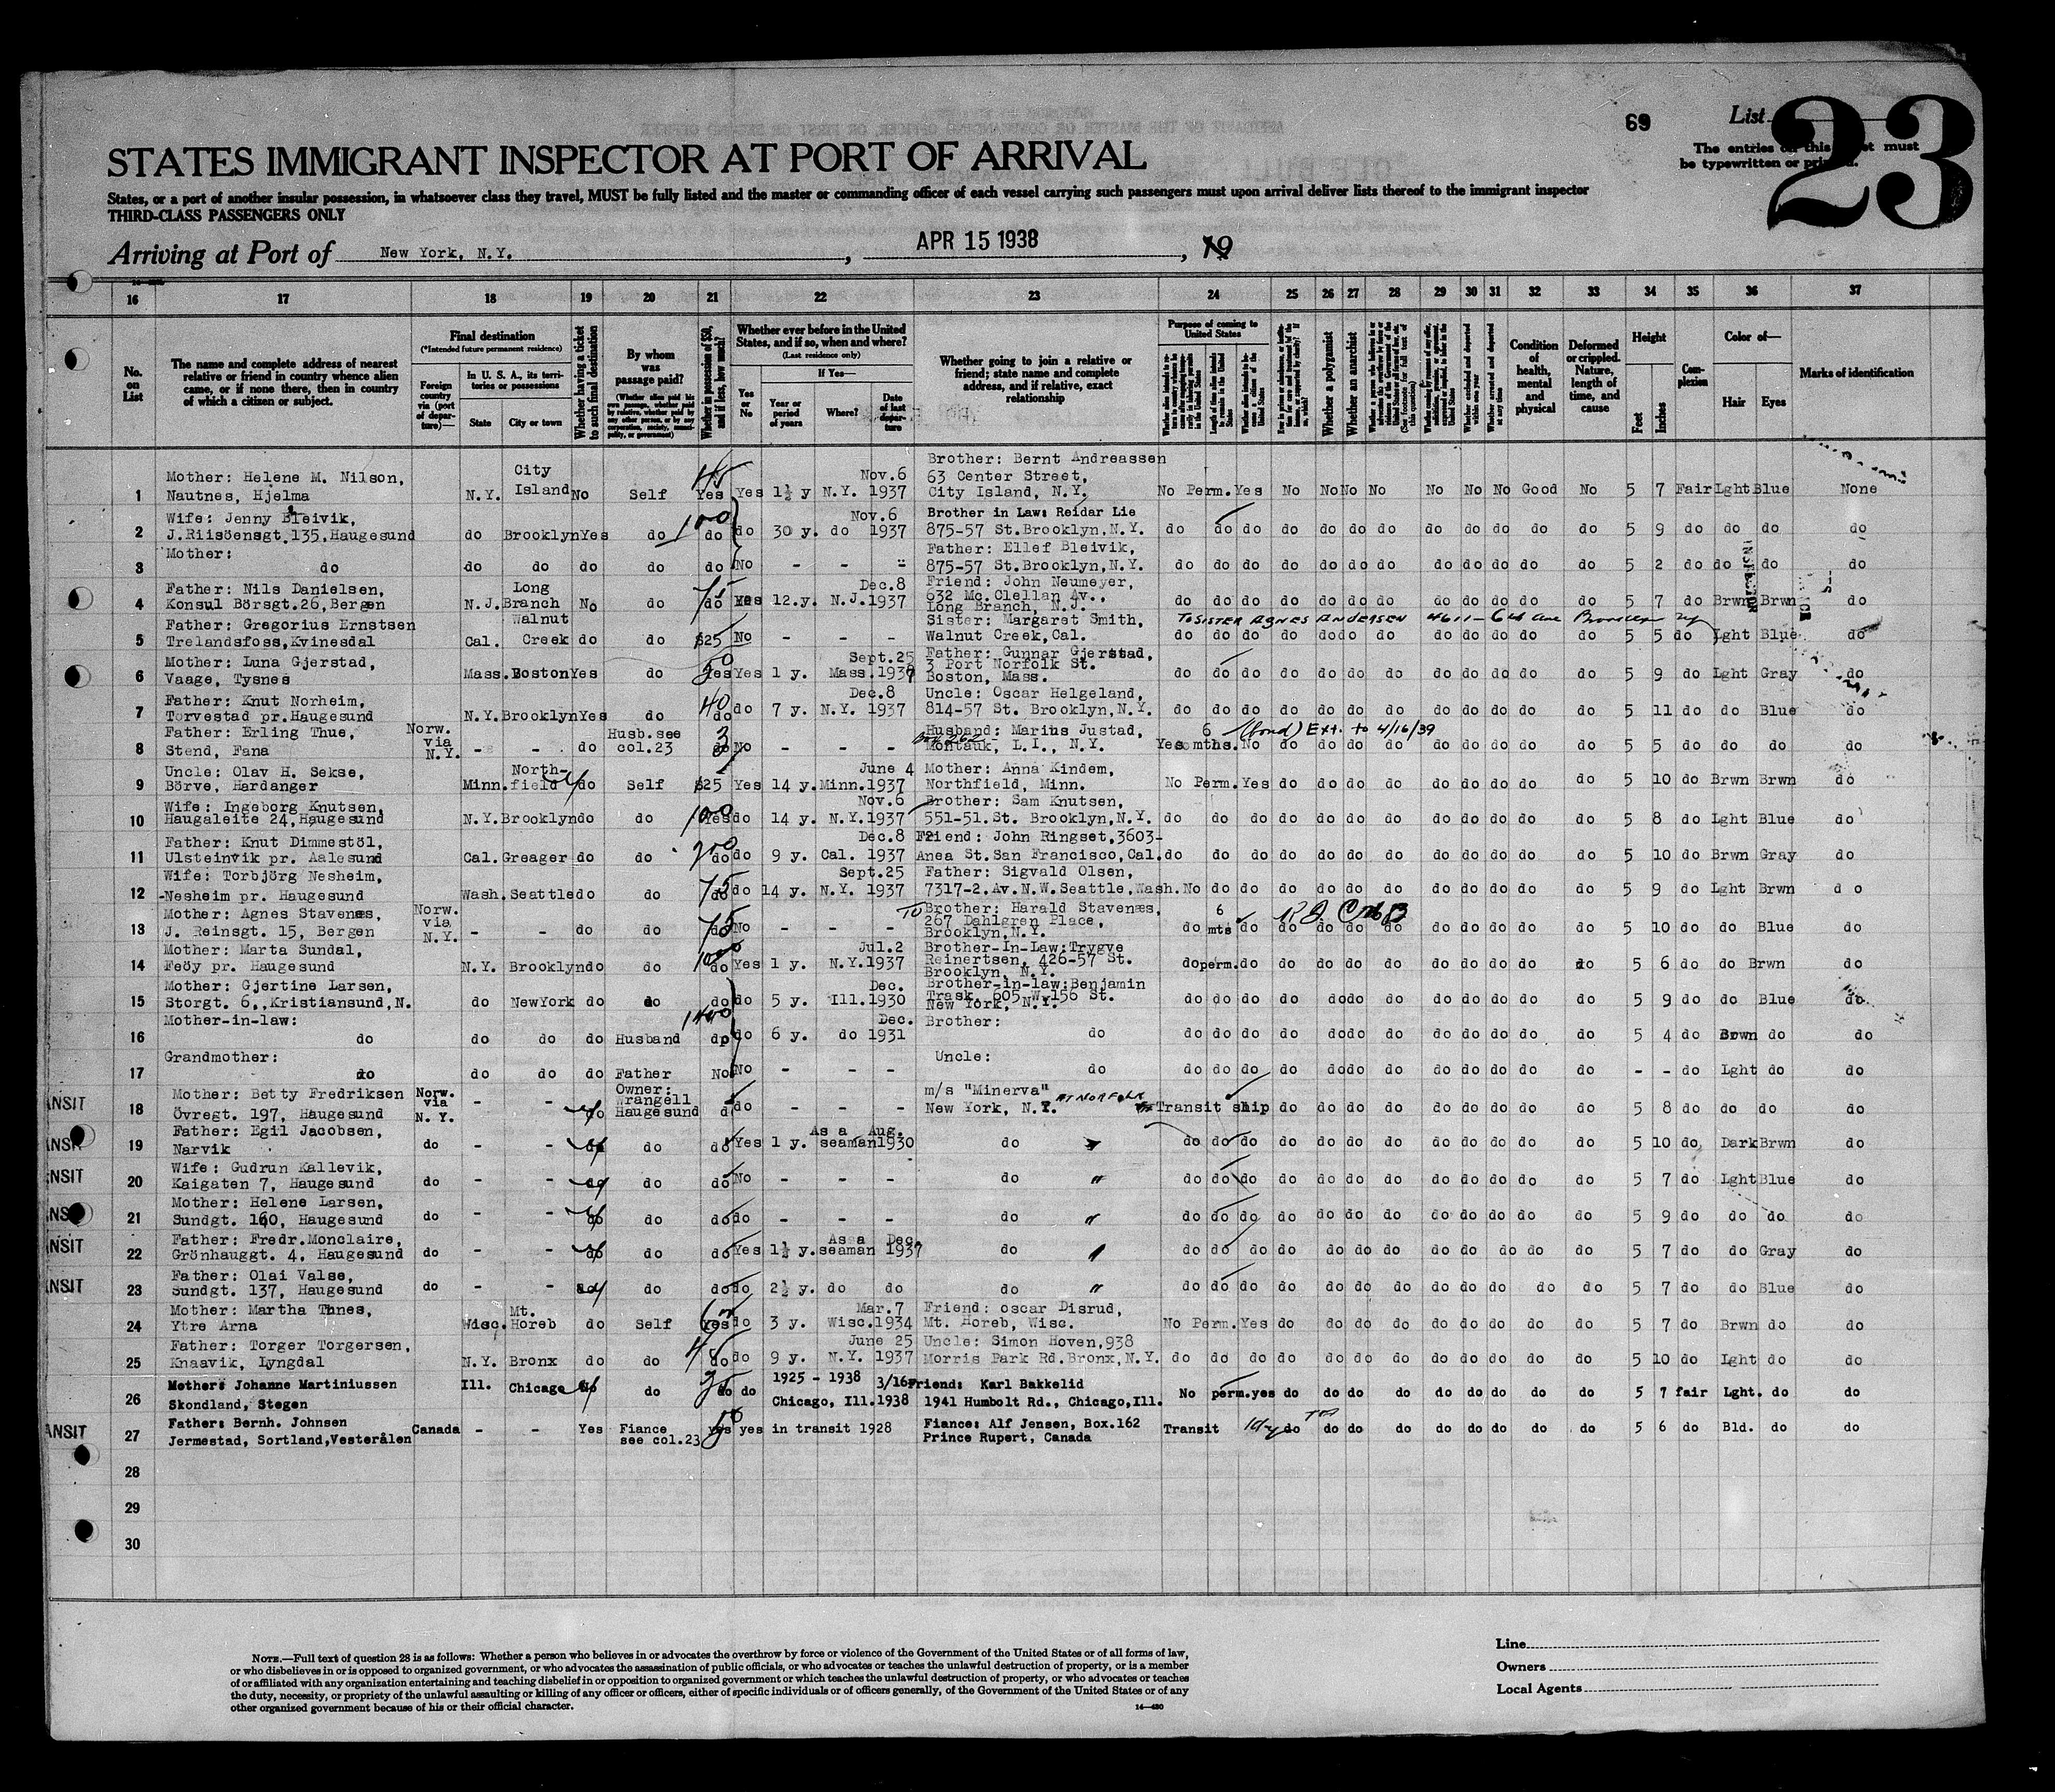 69
List
23
The entries on this sheet must
be typewritten or printed.
STATES IMMIGRANT INSPECTOR AT PORT OF ARRIVAL
States, or a port of another insular possession, in whatsoever class they travel, MUST be fully listed and the master or commanding officer of each vessel carrying such passengers must upon arrival deliver lists thereof to the immigrant inspector
THIRD-CLASS PASSENGERS ONLY
Arriving at Port of New York, N.Y., APR 15 1938, 19
16 17 18 19 20 21 22 23 24 25 26 27 28 29 30 31 32 33 34 35 36 37
No. on List
The name and complete address of nearest relative or friend in country whence alien came, or if none there, then in country of which a citizen or subject.
Final destination
(*Intended future permanent residence)
Foreign country via (port of departure)—
In U. S. A., its territories or possessions
State
City or town
Whether having a ticket to such final destination
By whom was passage paid?
(Whether alien paid his own passage, whether paid by relative, whether paid by any other person, or by any corporation, society, municipality, or government)
Whether in possession of $50, and if less, how much?
Whether ever before in the United States, and if so, when and where?
(Last residence only)
If Yes—
Yes or No
Year or period of years
Where?
Date of last departure
Whether going to join a relative or friend; state name and complete address, and if relative, exact relationship
Purpose of coming to United States
Whether a polygamist
Whether an anarchist
Condition of health, mental and physical
Deformed or crippled. Nature, length of time, and cause
Height
Feet
Inches
Complexion
Color of—
Hair
Eyes
Marks of identification
1 Mother: Helene M. Nilson, Nautnes, Hjelma N.Y. City Island No Self 45 Yes Yes 1½ y N.Y. Nov.6 1937 Brother: Bernt Andreassen 63 Center Street, City Island, N.Y. No Perm. Yes No No No No No No No Good No 5 7 Fair Lght Blue None
2 Wife: Jenny Bleivik, J.Riisöensgt.135,Haugesund do Brooklyn Yes do 100 do do 30 y. do Nov.6 1937 Brother in Law: Reidar Lie 875-57 St.Brooklyn,N.Y. do do do do do do do do do do do do 5 9 do do do do
3 Mother: do do do do do do No - - - Father: Ellef Bleivik, 875-57 St.Brooklyn,N.Y. do do do do do do do do do do do do 5 2 do do do do
4 Father: Nils Danielsen, Konsul Börsgt.26,Bergen N.J. Long Branch No do 75 do Yes 12.y. N.J. Dec.8 1937 Friend: John Neumeyer, 632 Mc.Clellan Av., Long Branch, N.J. do do do do do do do do do do do do 5 7 do Brwn Brwn do
5 Father: Gregorius Ernstsen Trelandsfoss,Kvinesdal Cal. Walnut Creek do do $25 No - - - Sister: Margaret Smith, Walnut Creek,Cal. TO SISTER AGNES ANDERSEN 4611-6th Ave do do do do do do do do do do do do 5 5 do Lght Blue do
6 Mother: Luna Gjerstad, Vaage, Tysnes Mass. Boston Yes do 50 Yes Yes 1 y. Mass. Sept.25 1937 Father: Gunnar Gjerstad, 3 Port Norfolk St. Boston, Mass. do do do do do do do do do do do do 5 9 do Lght Gray do
7 Father: Knut Norheim, Torvestad pr.Haugesund N.Y. Brooklyn Yes do 40 do do 7 y. N.Y. Dec.8 1937 Uncle: Oscar Helgeland, 814-57 St. Brooklyn,N.Y. do do do do do do do do do do do do 5 11 do do Blue do
8 Father: Erling Thue, Stend, Fana Norw. via N.Y. - - do Husb.see col.23 3 do No - - - Husband: Marius Justad, Box 262 Montauk, L.I., N.Y. Yes 6 mths. No (bond) Ext. to 4/16/39 do do do do do do do do do 5 5 do do do do
9 Uncle: Olav H. Sekse, Börve, Hardanger Minn. Northfield do Self $25 Yes 14 y. Minn. June 4 1937 Mother: Anna Kindem, Northfield, Minn. No Perm. Yes do do do do do do do do do 5 10 do Brwn Brwn do
10 Wife: Ingeborg Knutsen, Haugaleite 24,Haugesund N.Y. Brooklyn do do 100 Yes do 14 y. N.Y. Nov.6 1937 Brother: Sam Knutsen, 551-51.St. Brooklyn,N.Y. do do do do do do do do do do do do 5 8 do Lght Blue do
11 Father: Knut Dimmestöl, Ulsteinvik pr. Aalesund Cal. Greager do do 200 do do 9 y. Cal. Dec.8 1937 Friend: John Ringset,3603- Anea St.San Francisco,Cal. do do do do do do do do do do do do 5 10 do Brwn Gray do
12 Wife: Torbjörg Nesheim, Nesheim pr. Haugesund Wash. Seattle do do 75 do do 14 y. N.Y. Sept.25 1937 Father: Sigvald Olsen, 7317-2.Av.N.W.Seattle,Wash. No do do do do do do do do do do do 5 9 do Lght Brwn do
13 Mother: Agnes Stavenæs, J. Reinsgt. 15, Bergen Norw. via N.Y. - - do do 75 do No - - - To Brother: Harald Stavenæs, 267 Dahlgren Place, Brooklyn,N.Y. do 6 mts do do do do do do do do do do 5 10 do do Blue do
14 Mother: Marta Sundal, Feöy pr. Haugesund N.Y. Brooklyn do do 100 do Yes 1 y. N.Y. Jul.2 1937 Brother-In-Law:Trygve Reinertsen, 426-57 St. Brooklyn, N.Y. do perm. do do do do do do do do do do 5 6 do do Brwn do
15 Mother: Gjertine Larsen, Storgt. 6,,Kristiansund,N. do NewYork do do do do 5 y. Ill. Dec. 1930 Brother-in-law:Benjamin Trask, 605 W.156 St. New York, N.Y. do do do do do do do do do do do do 5 9 do do Blue do
16 Mother-in-law: do do do do Husband 1400 do do 6 y. do Dec. 1931 Brother: do do do do do do do do do do do do do 5 4 do Brwn do do
17 Grandmother: do do do do Father No No - - - Uncle: do do do do do do do do do do do do do - - do Lght do do
18 Mother: Betty Fredriksen Övregt. 197, Haugesund Norw. via N. Y. - - do Owner: Wrangell Haugesund do do - - - m/s "Minerva" New York, N.Y. AT NORFOLK Transit ship do do do do do do do do do 5 8 do do do do
19 Father: Egil Jacobsen, Narvik do - - do do do Yes 1 y. As a seaman Aug. 1930 do " do do do do do do do do do do do do 5 10 do Dark Brwn do
20 Wife: Gudrun Kallevik, Kaigaten 7, Haugesund do - - do do do No - - - do " do do do do do do do do do do do do 5 7 do Lght Blue do
21 Mother: Helene Larsen, Sundgt. 160, Haugesund do - - do do do do - - - do " do do do do do do do do do do do do 5 9 do do do do
22 Father: Fredr.Monclaire, Grönhauggt. 4, Haugesund do - - do do do Yes 1½ y. As a seaman Dec. 1937 do " do do do do do do do do do do do 5 7 do do Gray do
23 Father: Olai Valse, Sundgt. 137, Haugesund do - - do do do do 2½ y. do do do " do do do do do do do do do do do do 5 7 do do Blue do
24 Mother: Martha Tunes, Ytre Arna Wisc. Mt. Horeb do Self Yes do 3 y. Wisc. Mar.7 1934 Friend: oscar Disrud, Mt. Horeb, Wisc. No Perm. Yes do do do do do do do do do 5 7 do Brwn do do
25 Father: Torger Torgersen, Knaavik, Lyngdal N.Y. Bronx do do 45 do do 9 y. N.Y. June 25 1937 Uncle: Simon Hoven,938 Morris Park Rd.Bronx,N.Y. do do do do do do do do do do do do 5 10 do Lght do do
26 Mother: Johanne Martiniussen Skondland, Stegen Ill. Chicago do do 35 do do 1925 - 1938 Chicago, Ill. 3/16 1938 Friend: Karl Bakkelid 1941 Humbolt Rd., Chicago,Ill. No perm. yes do do do do do do do do do 5 7 fair Lght. do do
27 Father: Bernh. Johnsen Jermestad, Sortland,Vesterålen Canada - - Yes Fiance see col.23 50 yes yes in transit 1928 Fiance: Alf Jensen, Box.162 Prince Rupert, Canada Transit 1 day do do do do do do do do do 5 6 do Bld. do do
28
29
30
NOTE.—Full text of question 28 is as follows: Whether a person who believes in or advocates the overthrow by force or violence of the Government of the United States or of all forms of law,
or who disbelieves in or is opposed to organized government, or who advocates the assassination of public officials, or who advocates or teaches the unlawful destruction of property, or is a member
of or affiliated with any organization entertaining and teaching disbelief in or opposition to organized government or which teaches the unlawful destruction of property, or who advocates or teaches
the duty, necessity, or propriety of the unlawful assaulting or killing of any officer or officers, either of specific individuals or of officers generally, of the Government of the United States or of any
other organized government because of his or their official character.
14—480
Line
Owners
Local Agents